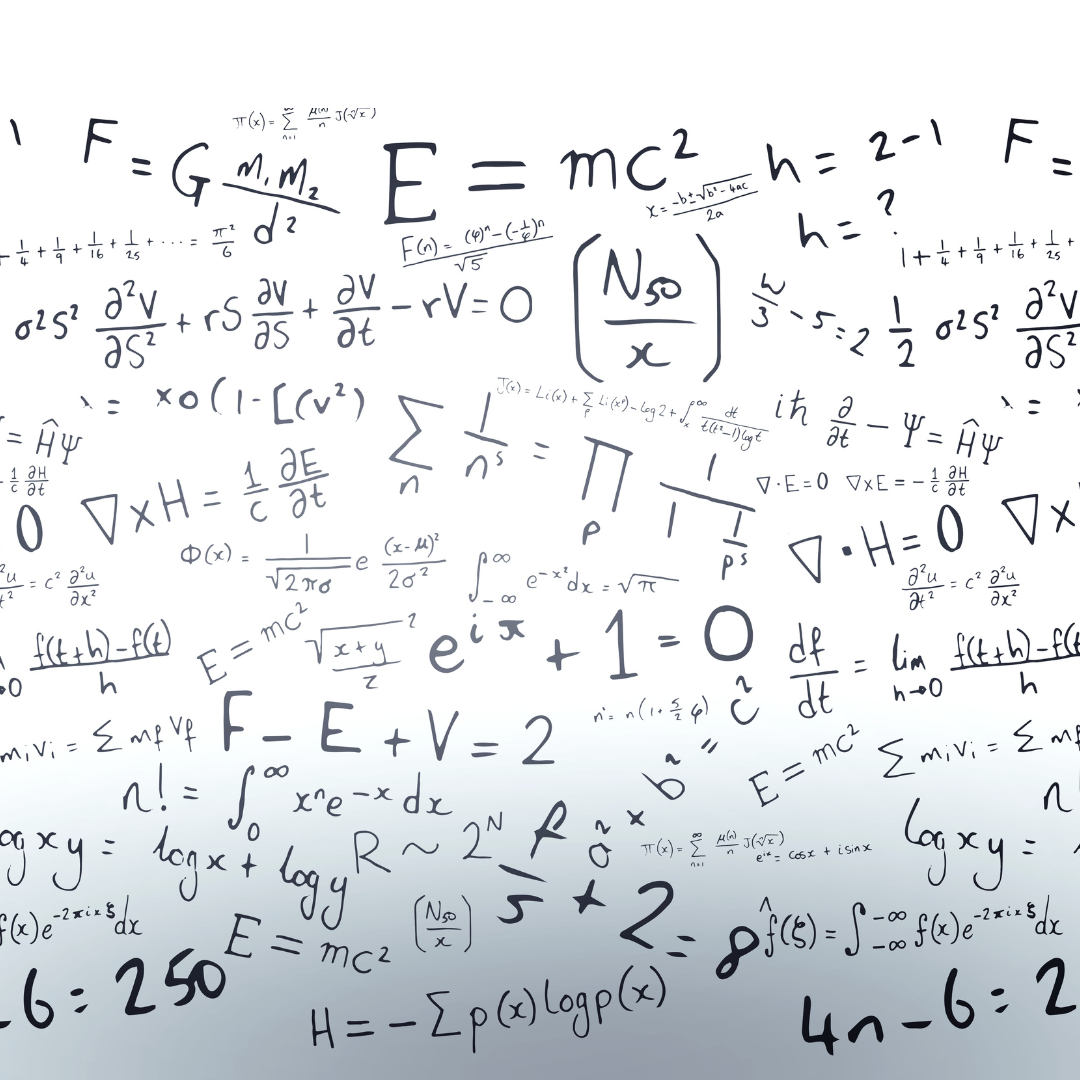 π(x) = ∑ₙ₌₁^∞ μ(n)/n J(ⁿ√x)
F = G m₁m₂/d²
E = mc²
h = 2-1
F =
x = -b±√b²-4ac/2a
h = ?
+ 1/4 + 1/9 + 1/16 + 1/25 + ··· = π²/6
F(n) = (φ)ⁿ-(-1/φ)ⁿ/√5
1 + 1/4 + 1/9 + 1/16 + 1/25 +
σ²S² ∂²V/∂S² + rS ∂V/∂S + ∂V/∂t - rV = 0
(N₅₀/x)
w/3 - 5 = 2
1/2 σ²S² ∂²V/∂S²
= xo(1-[(v²)
J(x) = Li(x) + ∑ₚ Li(xᵖ) - log 2 + ∫ₓ^∞ dt/t(t²-1)logt
= ĤΨ
∑ₙ 1/nˢ = ∏ₚ 1/1 1/pˢ
iħ ∂/∂t - Ψ = ĤΨ
1/c ∂H/∂t
0
∇xH = 1/c ∂E/∂t
∇·E = 0
∇xE = - 1/c ∂H/∂t
∇·H = 0
∇x
Φ(x) = 1/√2πσ e (x-μ)²/2σ²
∫₋∞^∞ e⁻ˣ²dx = √π
²u/t² = c² ∂²u/∂x²
∂²u/∂t² = c² ∂²u/∂x²
→0 f(t+h)-f(t)/h
E = mc²
√x+y/z ²
e^iπ + 1 = 0
df/dt = lim h→0 f(t+h)-f(t/h
mᵢvᵢ = ∑mfVf
F - E + V = 2
n = n(1+ 5/2 φ)
c²
E = mc²
∑mᵢvᵢ = ∑mf
n! = ∫₀^∞ xⁿe⁻ˣdx
b²
=
n
og xy = log x + log y
R ~ 2ᴺ
a² x
π(x) = ∑ₙ₌₁^∞ μ(n)/n J(ⁿ√x)
eⁱˣ = cosx + i sinx
log xy =
f/5 + 2 = 8
f(x)e^-2πixξdx
E = mc²
(N₅₀/x)
f̂(ξ) = ∫₋∞^-∞ f(x)e^-2πixξdx
-6 = 250
H = -∑p(x)logp(x)
4n-6 = 2